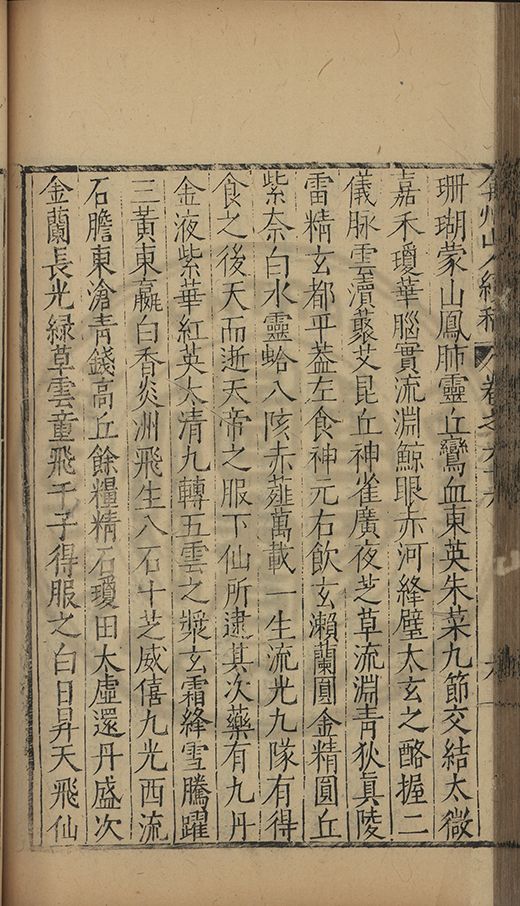 弇州山人續稿 卷之六十六
珊瑚蒙山鳳肺靈丘鸞血東英朱菜九節交結太微
嘉禾瓊華腦實流淵鯨眼赤河絳璧太玄之酪握二
儀脉雲瀆藂艾昆丘神雀廣夜芝草流淵青狄眞陵
雷精玄都平蓋左食神元右飲玄瀨蘭圓金精圓丘
紫柰白水靈蛤八陔赤薤萬載一生流光九隊有得
食之後天而逝天帝之服下仙所逮其次藥有九丹
金液紫華紅英太清九轉五雲之漿玄霜絳雪騰躍
三黃東瀛白香炎洲飛生八石十芝威僖九光西流
石膽東滄青錢高丘餘糧精石瓊田太虛還丹盛次
金蘭長光綠草雲童飛千子得服之白日昇天飛仙